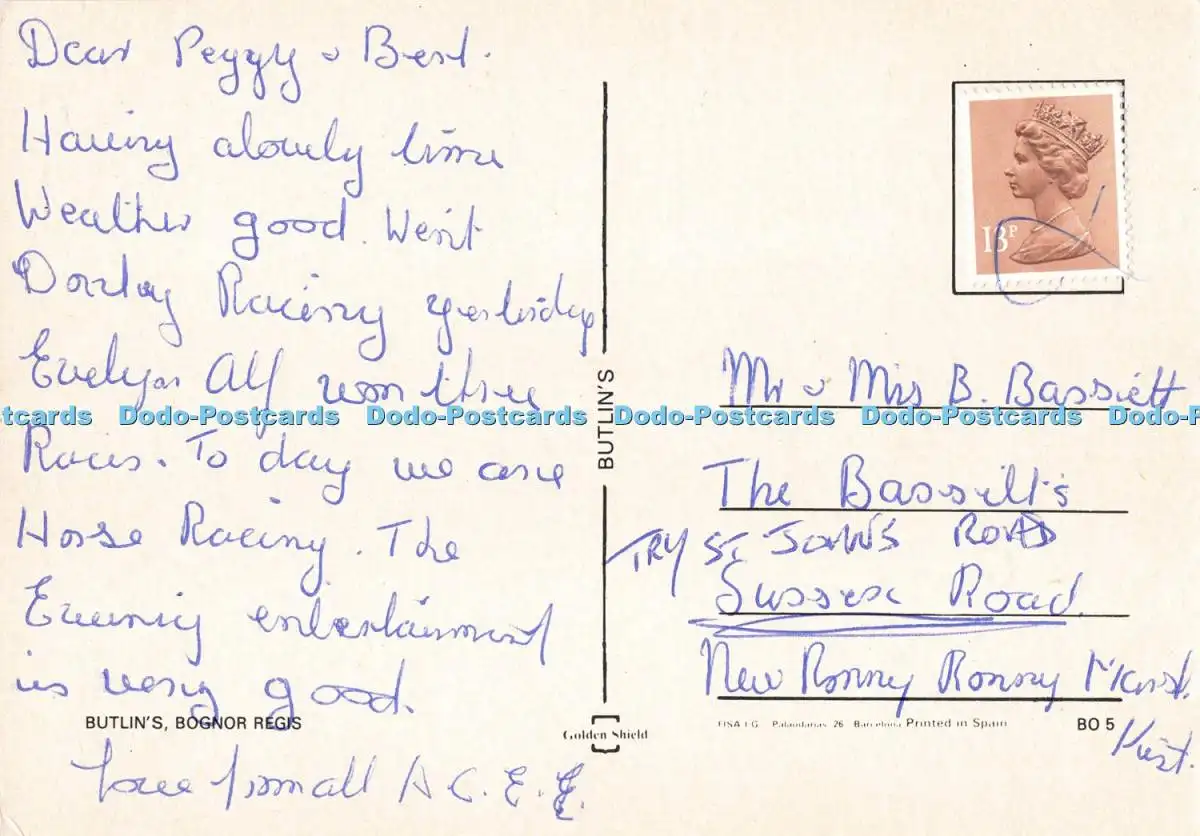 Dear Peggy & Bert.
Having alovely time
Weather good. Went
Donkey Racing yesterday
Evelyn Alf won three
Races. To day we are
Horse Racing. The
Evening entertainment
is very good.
BUTLIN'S, BOGNOR REGIS
Love from all A C. E. E.
BUTLIN'S
Golden Shield
13P
Mr & Mrs B. Bassett
Dodo-Postcards Dodo-Postcards Dodo-Postcards Dodo-Postcards
The Bassett's
TRY ST JOHN'S ROAD
Sussex Road
New Romny Romny Marst.
Kent.
FISA I.G. Palaudarias, 26 Barcelona Printed in Spain
BO 5